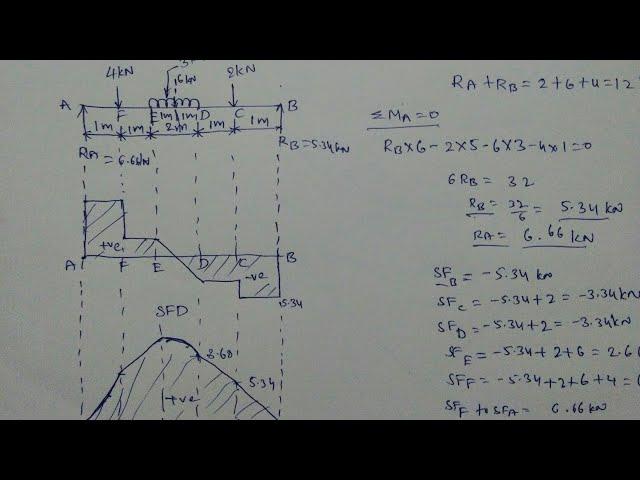 4kN
6kN
2kN
A F E D C B
1m 1m 1m 1m 2m 1m 1m
RA = 6.66kN
RB=5.34kN
+ve
A F E D C B
-ve
5.34
SFD
8.68
5.34
+ve
RA + RB = 2+6+4=12
ΣMA=0
RB×6-2×5-6×3-4×1=0
6RB = 32
RB = 32/6 = 5.34 kN
RA= 6.66 kN
SFB = -5.34 kN
SFC = -5.34+2 = -3.34kN
SFD = -5.34+2 = -3.34kN
SFE = -5.34+2+6 = 2.6
SFF = -5.34+2+6+4=
SFF to SFA = 6.66 kN